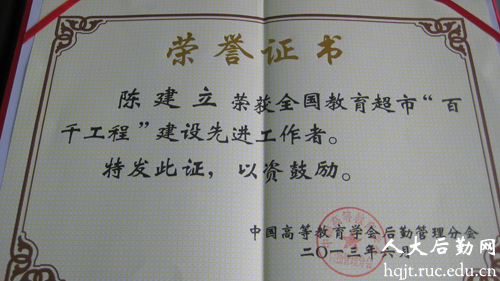 荣誉证书
陈建立荣获全国教育超市“百
千工程”建设先进工作者。
特发此证，以资鼓励。
中国高等教育学会后勤管理分会
二〇一三年六月
人大后勤网
hqjt.ruc.edu.cn